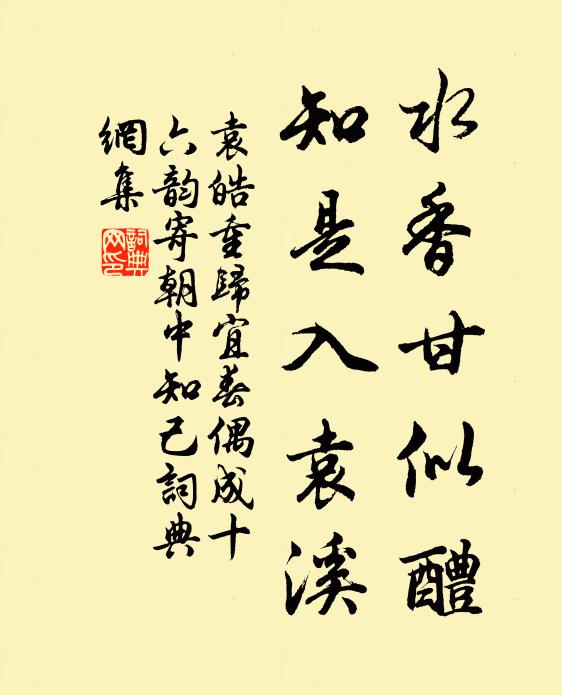 水香甘似醴
知是入袁溪
袁皓重歸宜春偶成十
六韵寄朝中知己詞典
網集
詞典
网印